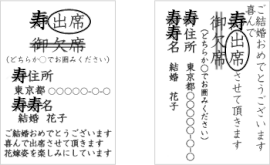 寿出席
御欠席
(どちらか○でお囲みください)
寿住所
東京都○○○○○-○-○
寿寿名
結婚 花子
ご結婚おめでとうございます
喜んで出席させて頂きます
花嫁姿を楽しみにしています
ご結婚おめでとうございます
喜んで
寿出席させて頂きます
御欠席
(どちらか○でお囲みください)
寿住所
東京都○○○○○-○-○
寿寿名
結婚 花子